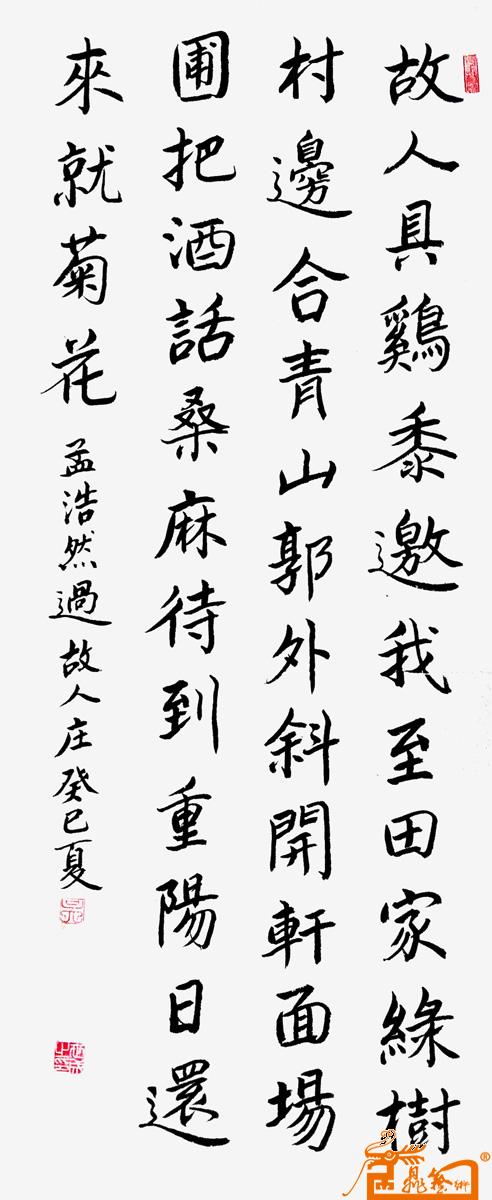 故人具鷄黍邀我至田家綠樹
村邊合青山郭外斜開軒面場
圃把酒話桑麻待到重陽日還
來就菊花
孟浩然過故人庄癸巳夏